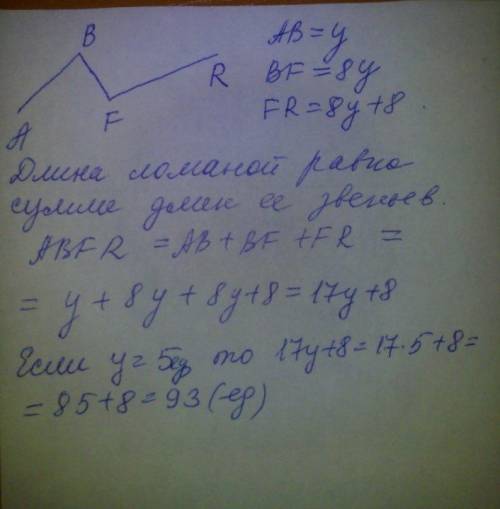 B
AB = y
R
BF = 8y
A
F
FR = 8y + 8.
Длина ломаной равна
сумме длин ее звеньев.
ABFR = AB + BF + FR =
= y + 8y + 8y + 8 = 17y + 8
Если y = 5ед то 17y + 8 = 17·5 + 8 =
= 85 + 8 = 93 (ед)